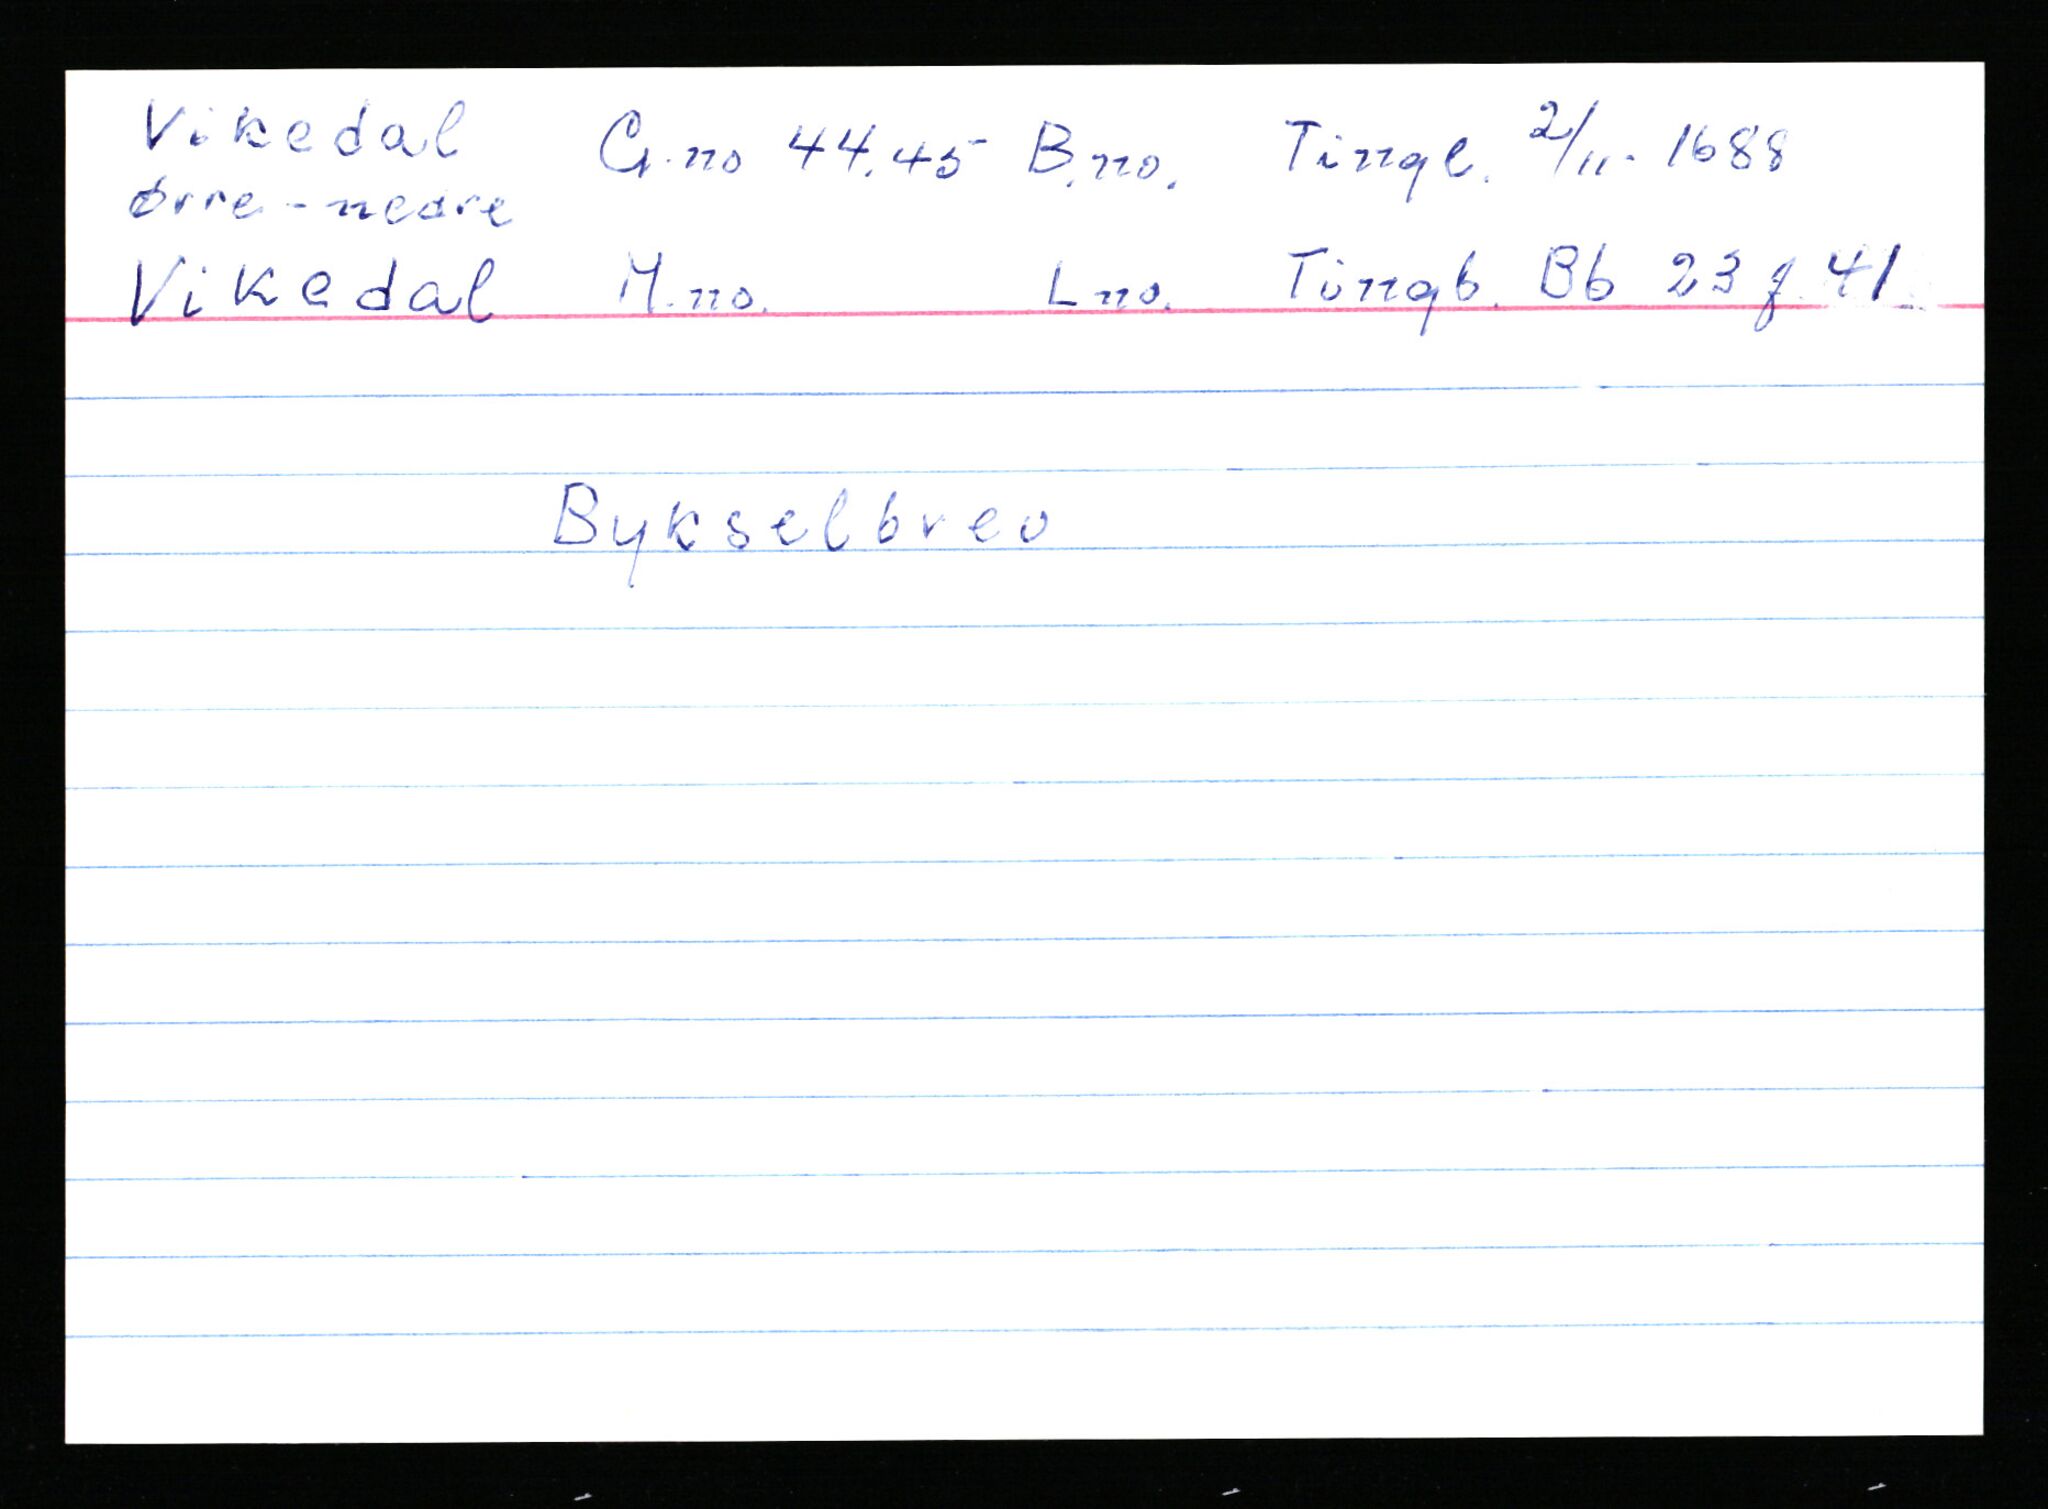 Vikedal G.no 44.45 B.no. Tingl. 2/11-1688
Ørre-nedre
Vikedal M.no. L.no. Tingb. Bb 23 f. 41
Bykselbrev